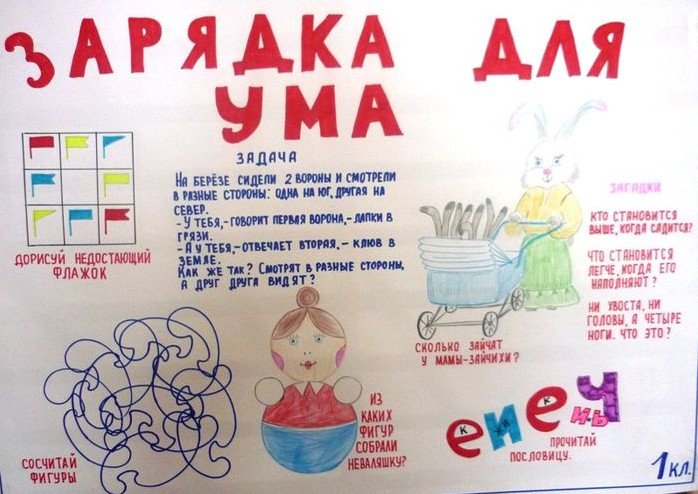 ЗАРЯДКА ДЛЯ
УМА
ЗАДАЧА
НА БЕРЁЗЕ СИДЕЛИ 2 ВОРОНЫ И СМОТРЕЛИ
В РАЗНЫЕ СТОРОНЫ: ОДНА НА ЮГ, ДРУГАЯ НА
СЕВЕР.
-У ТЕБЯ,-ГОВОРИТ ПЕРВАЯ ВОРОНА,-ЛАПКИ В
ГРЯЗИ.
-А У ТЕБЯ,-ОТВЕЧАЕТ ВТОРАЯ,- КЛЮВ В
ЗЕМЛЕ.
КАК ЖЕ ТАК? СМОТРЯТ В РАЗНЫЕ СТОРОНЫ,
А ДРУГ ДРУГА ВИДЯТ?
ДОРИСУЙ НЕДОСТАЮЩИЙ
ФЛАЖОК
ЗАГАДКИ
КТО СТАНОВИТСЯ
ВЫШЕ, КОГДА САДИТСЯ?
ЧТО СТАНОВИТСЯ
ЛЕГЧЕ, КОГДА ЕГО
НАПОЛНЯЮТ?
НИ ХВОСТА, НИ
ГОЛОВЫ, А ЧЕТЫРЕ
НОГИ. ЧТО ЭТО?
СКОЛЬКО ЗАЙЧАТ
У МАМЫ-ЗАЙЧИХИ?
СОСЧИТАЙ
ФИГУРЫ
ИЗ
КАКИХ
ФИГУР
СОБРАЛИ
НЕВАЛЯШКУ?
е и е Ч
К Жи К и-ь
ПРОЧИТАЙ
ПОСЛОВИЦУ.
1 КЛ.